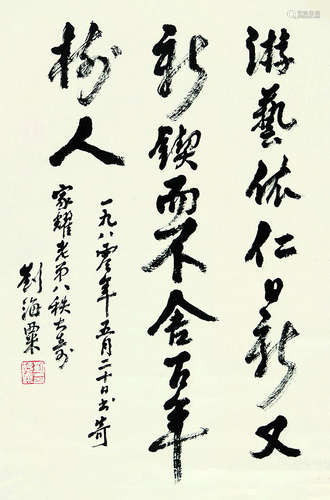 游藝依仁日新又
新鍥而不舍百年
樹人
一九八零年五月二十日書寄
家耀老弟八秩大壽
劉海粟